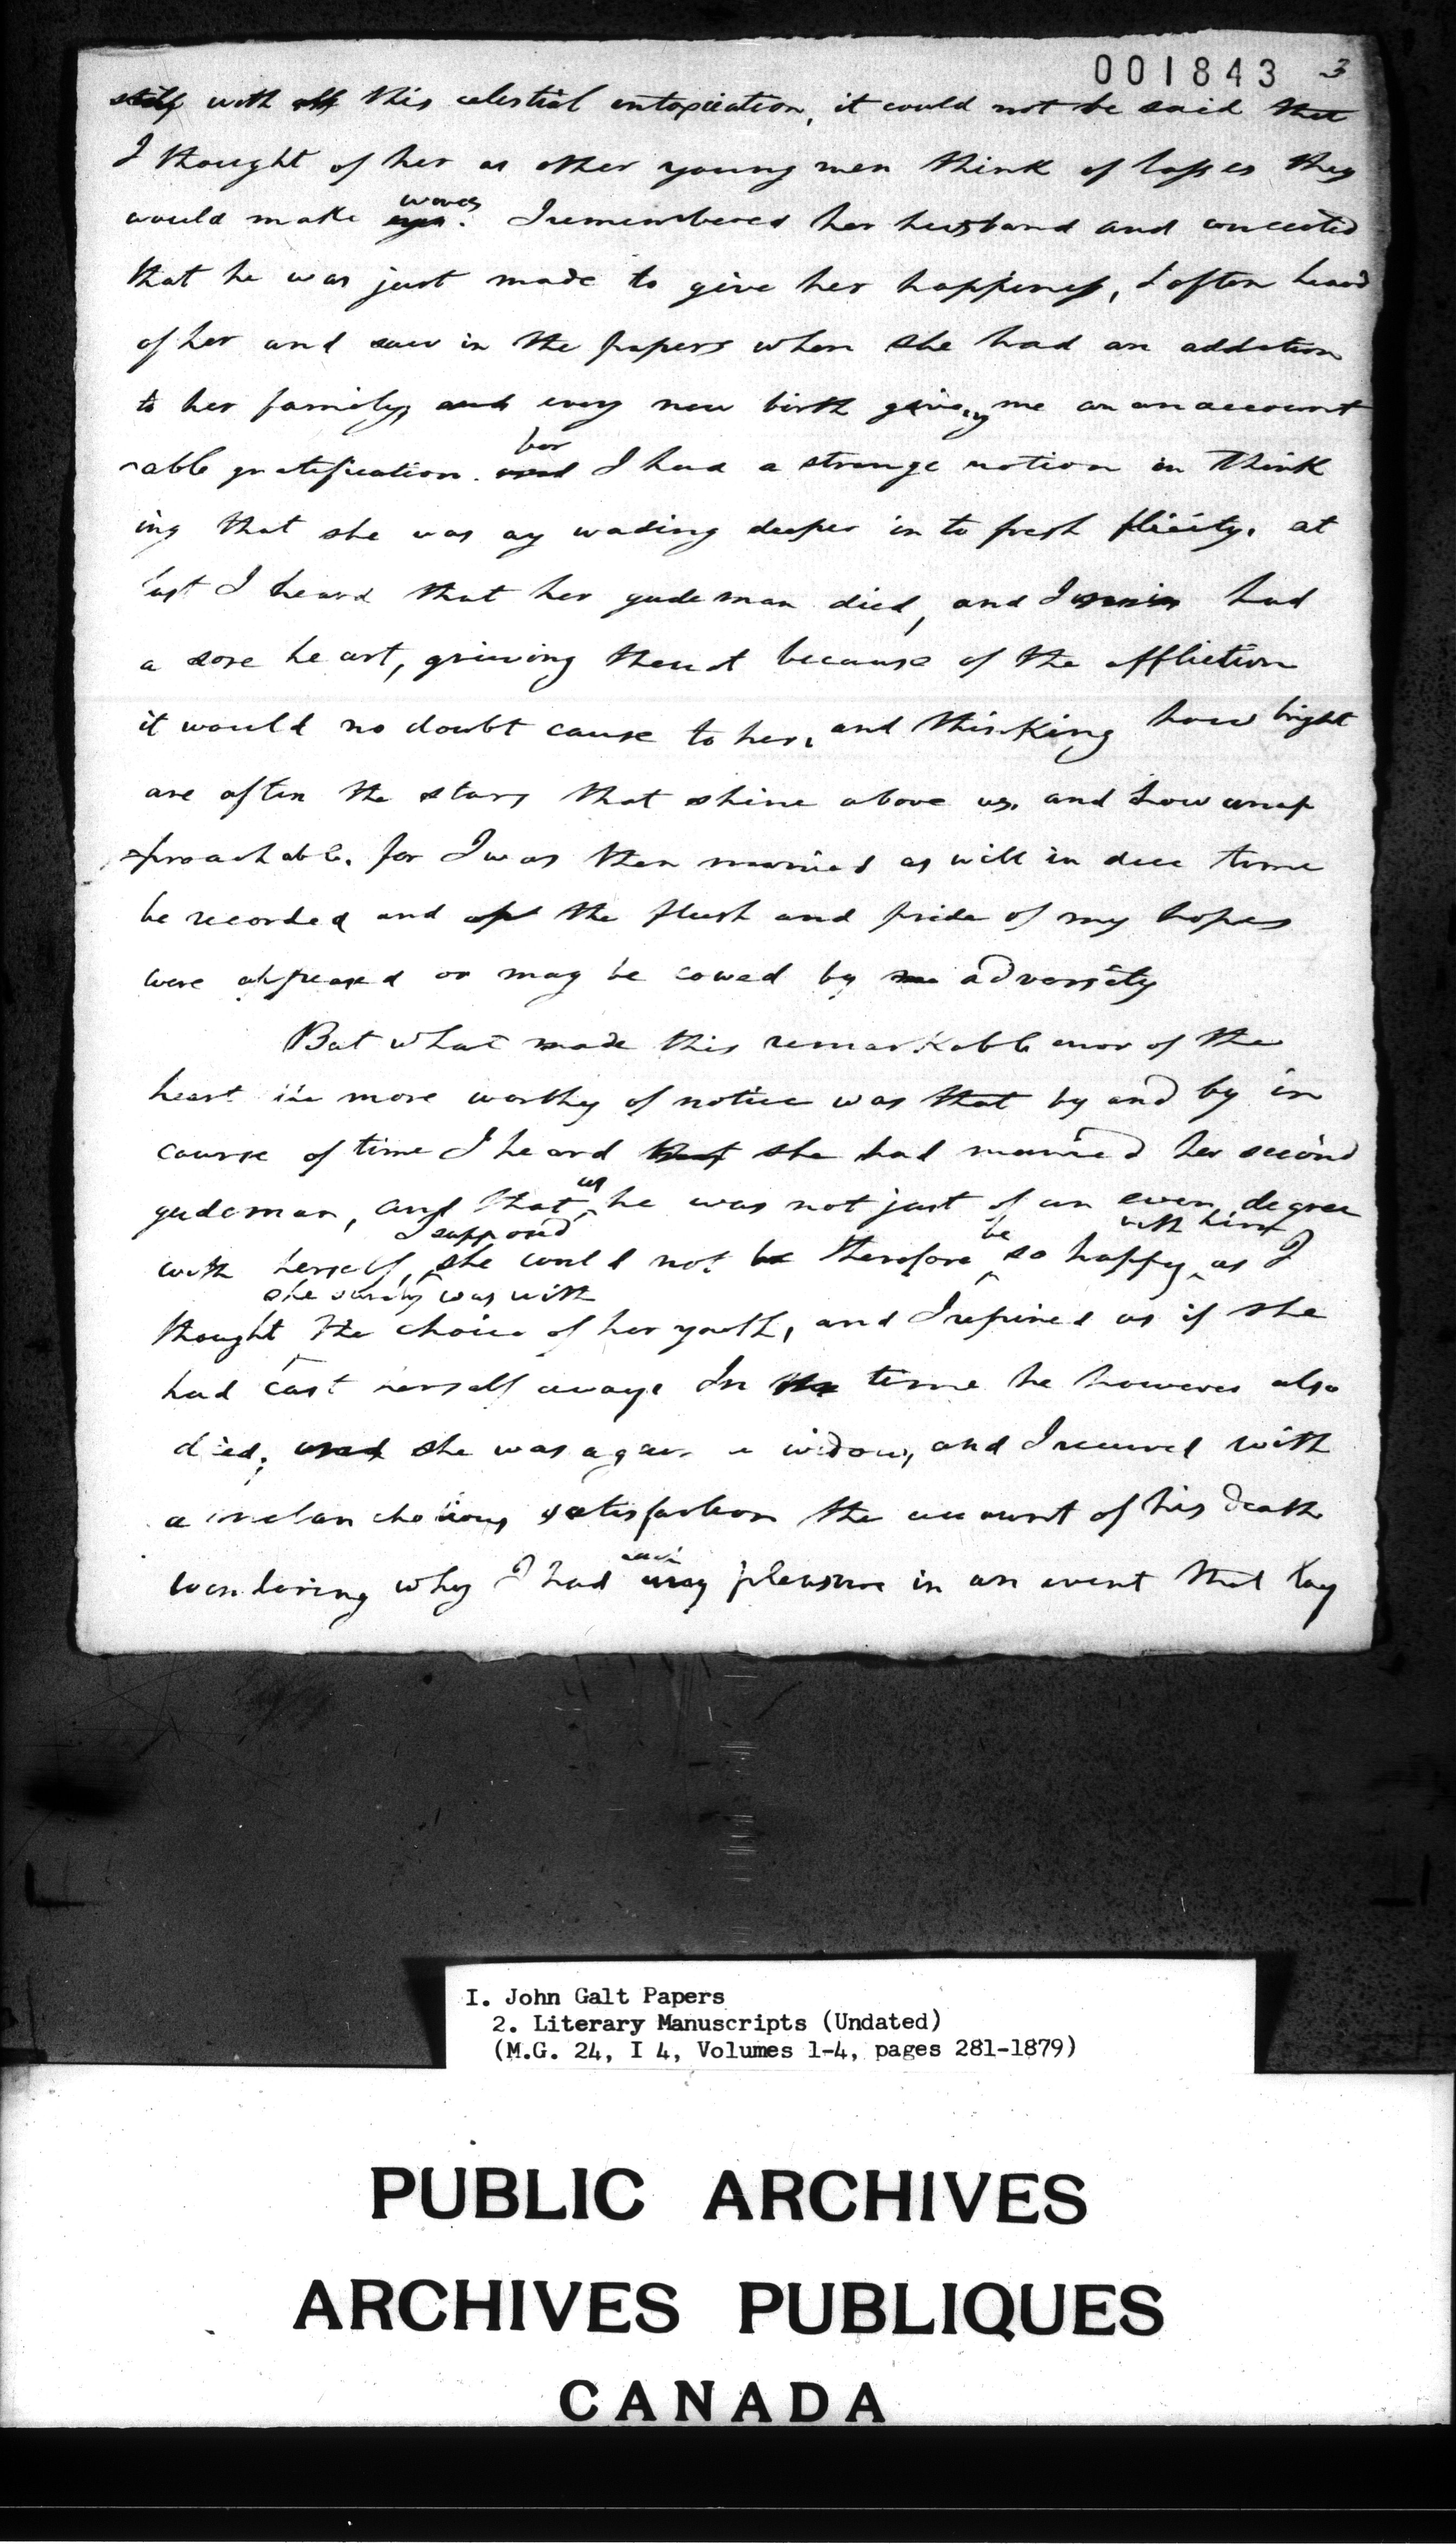 001843 3
with this celestial intoxication, it could not be said that
I thought of her as other young men think of lasses they
would make waves
wives. I remembered her husband and conceited
that he was just made to give her happiness, I often heard
of her and saw in the papers when she had an addition
to her family, and every new birth giving me an unaccount
able gratification. for and I had a strange notion in think
ing that she was ay wading deeper in to fresh flicity. at
last I heard that her gudeman died, and I had
a sore heart, grieving thereat because of the affliction
it would no doubt cause to her, and thinking how bright
are often the stars that shine above us, and how unap
proachable. for I was then married as will in due time
be recorded and the flush and pride of my hopes
were appeased or may be cowed by adversity
But what made this remarkable error of the
heart the more worthy of notice was that by and by in
course of time I heard that she had married her second
gudeman, and that as he was not just of an even degree
with herself, I supposed she could not be therefore be so happy with him as I
thought she surely was with the choice of her youth, and I repined as if she
had cast herself away. In the time he however also
died; and she was again a widow, and I received with
a melancholious satisfaction the account of his death
wondering why I had any pleasure in an event that lay
I. John Galt Papers
2. Literary Manuscripts (Undated)
(M.G. 24, I 4, Volumes 1-4, pages 281-1879)
PUBLIC ARCHIVES
ARCHIVES PUBLIQUES
CANADA